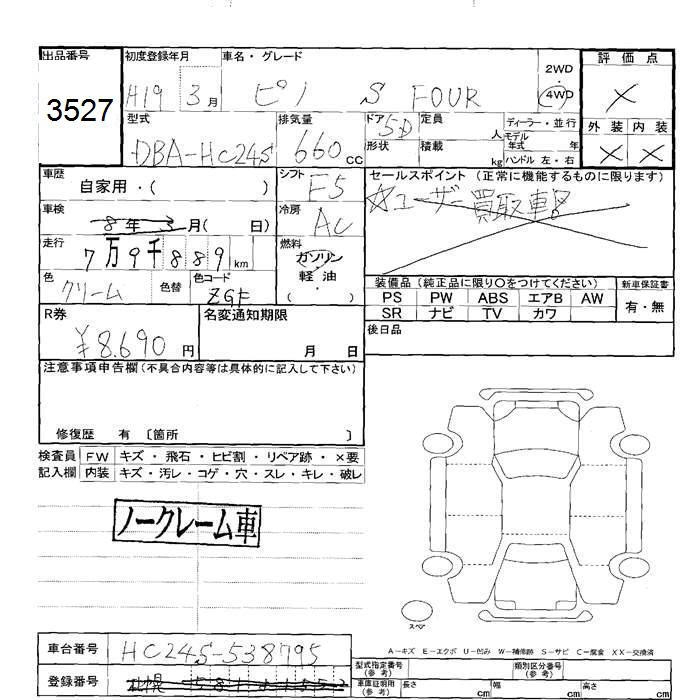 出品番号
3527
初度登録年月
H19 3月
車名・グレード
ピノ S FOUR
2WD
・
4WD
評価点
×
外装 内装
× ×
型式
DBA-HC24S
排気量
660cc
ドア
5D
形状
定員
人
積載
kg
ディーラー・並行
モデル
年式 年
ハンドル 左・右
車歴
自家用・( )
シフト
F5
セールスポイント (正常に機能するものに限ります)
☆ユーザー買取車
車検
8年3月( 日)
冷房
AC
走行
7万9千889km
燃料
ガソリン
軽油
( ・ )
色
クリーム
色替
色コード
ZGF
装備品 (純正品に限り○をつけてください)
新車保証書
PS PW ABS エアB AW
有・無
SR ナビ TV カワ
後日品
R券
¥8.690円
名変通知期限
月 日
注意事項申告欄(不具合内容等は具体的に記入して下さい)
修復歴 有 〔箇所 〕
検査員
記入欄
FW キズ・飛石・ヒビ割・リペア跡・×要
内装 キズ・汚レ・コゲ・穴・スレ・キレ・破レ
ノークレーム車
スペア
A-キズ E-エクボ U-凹み W-補修跡 S-サビ C-腐食 XX-交換済
車台番号
HC24S-538795
登録番号
札幌
型式指定番号
(参考)
類別区分番号
(参考)
車庫証明用
(参考)
長さ cm
幅 cm
高さ cm